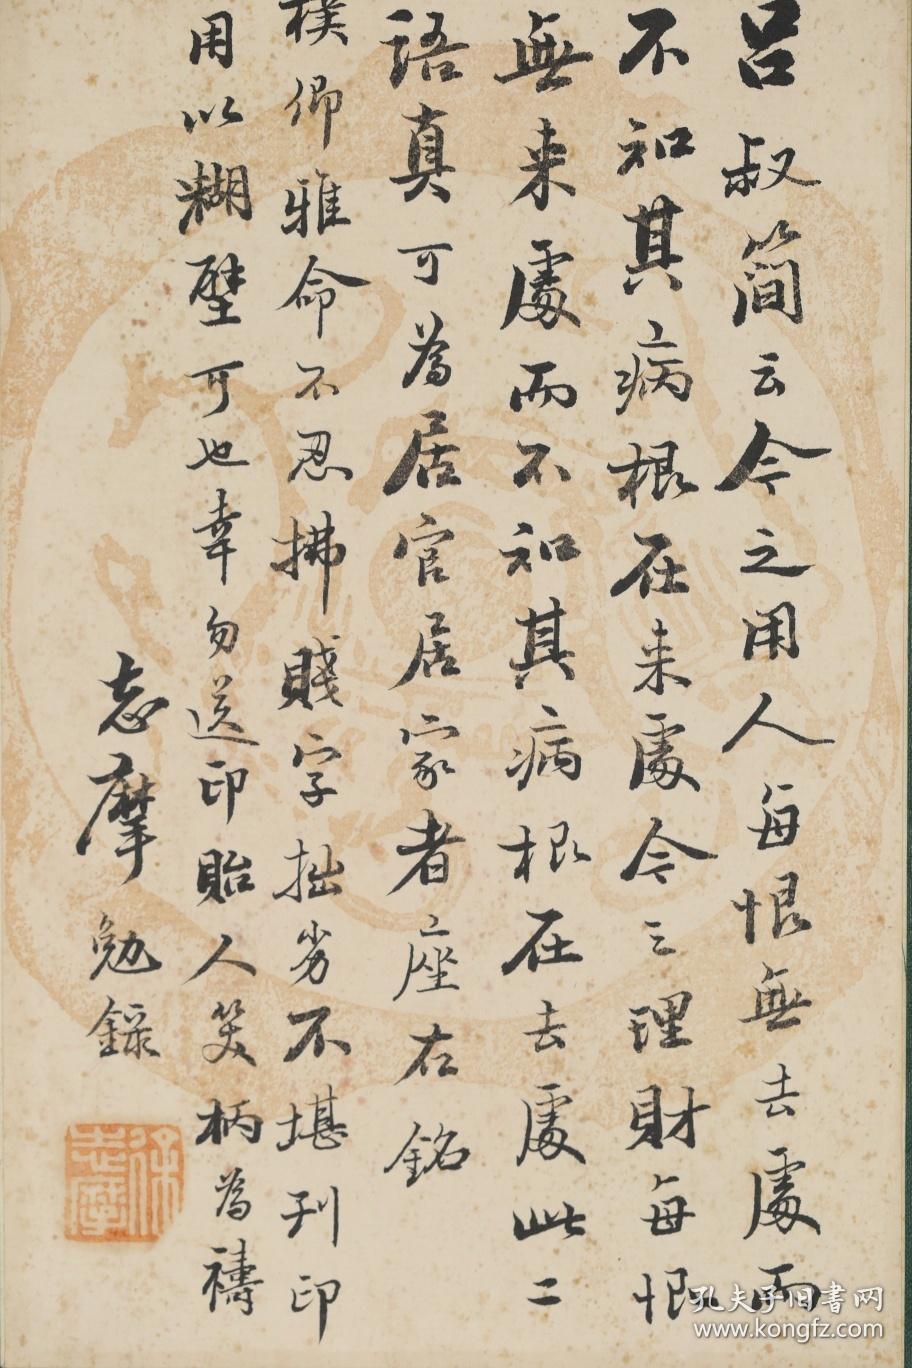 呂叔簡云今之用人每恨無去處而
不知其病根在来處今之理財每恨
無来處而不知其病根在去處此二
語真可為居官居家者座右銘
樸卿雅命不忍拂賤字拙劣不堪刊印
用以糊壁可也幸勿送印貽人笑柄為禱
志摩勉録
徐志摩
孔夫子旧书网
www.kongfz.com